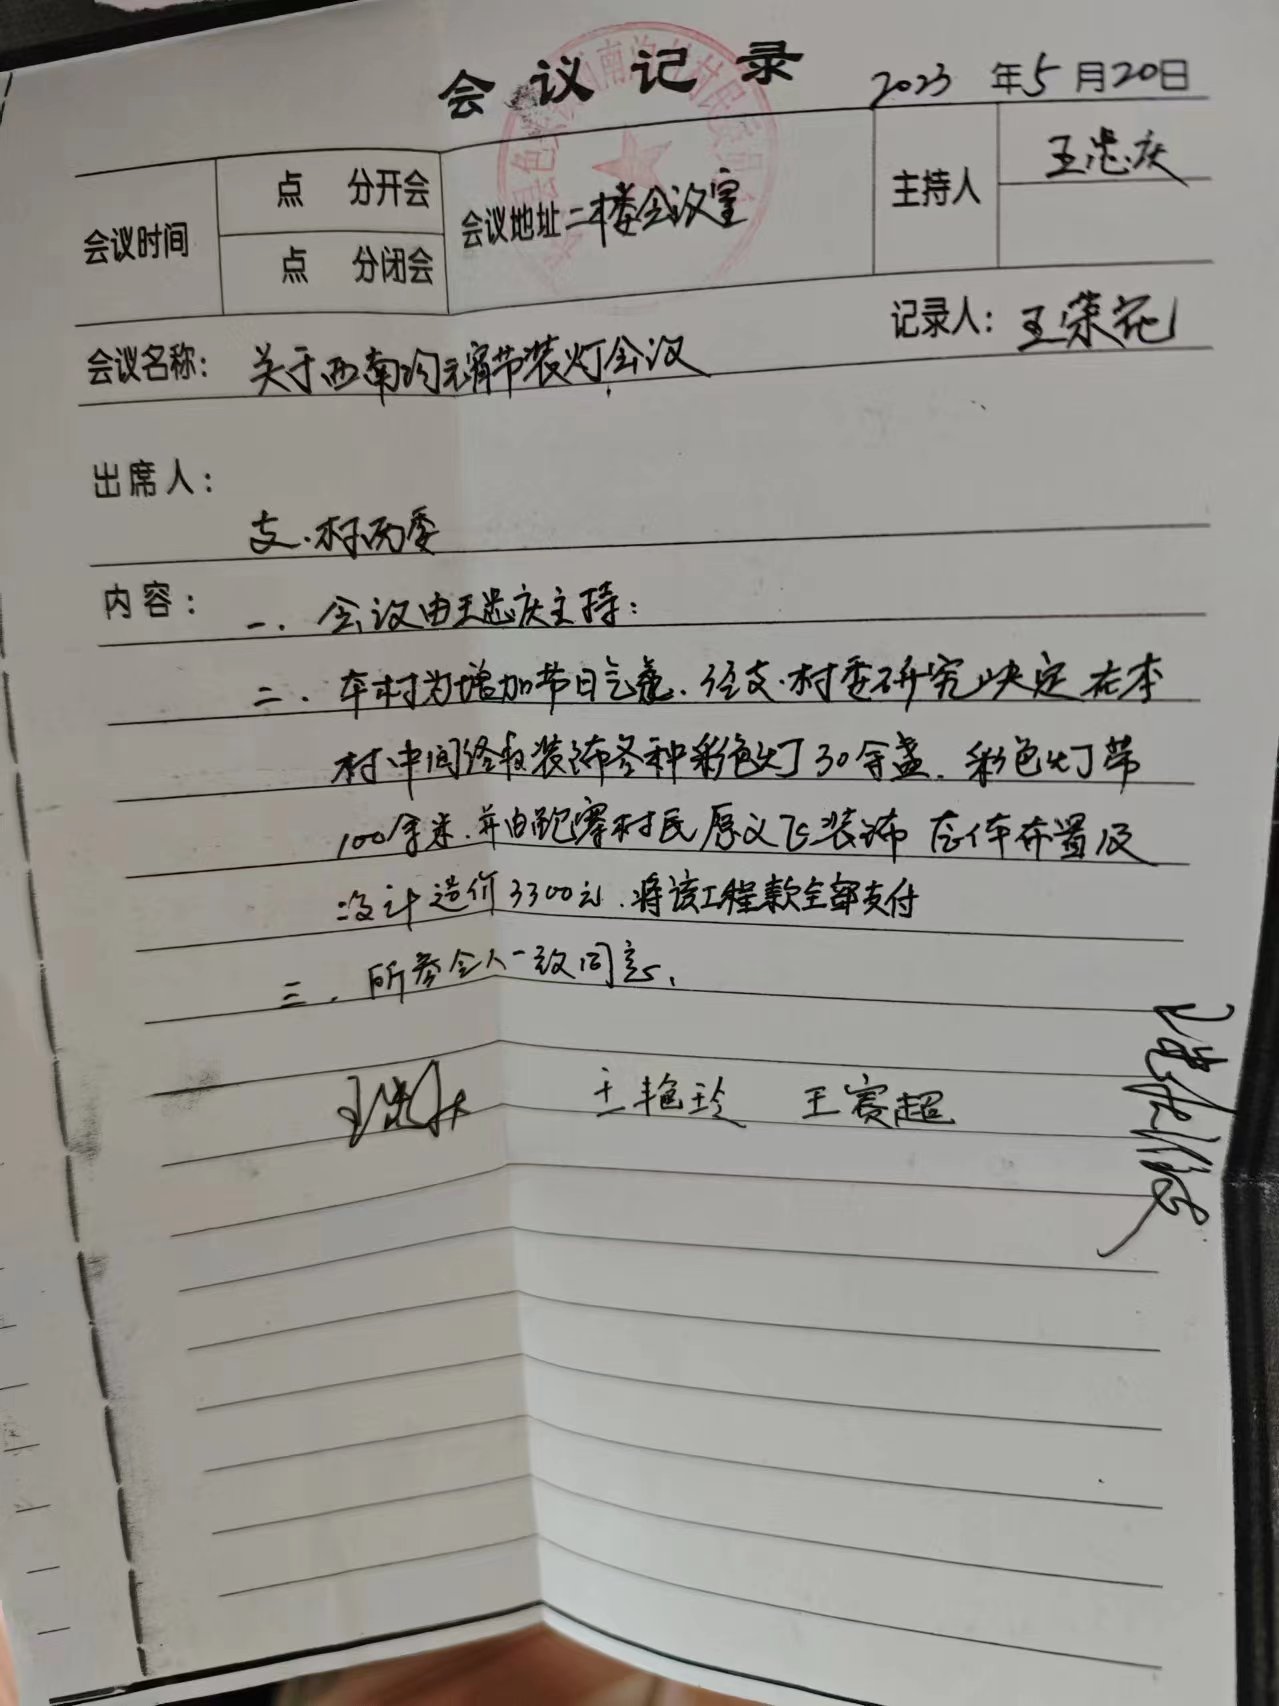 会议记录
2023年5月20日
会议时间 点 分开会 会议地址 二楼会议室 主持人 王忠庆
点 分闭会
记录人：王荣花
会议名称：关于西南沟元宵节装灯会议
出席人：
支.村两委
内容：一. 会议由王忠庆主持：
二. 本村为增加节日气氛.经支.村委研究决定在本
村中间路段装饰各种彩色灯30余盏.彩色灯带
100余米.并由 村民 装饰 布置及
设计造价3300元.将该工程款全部支付
三. 所参会人一致同意.
王艳玲 王赛超